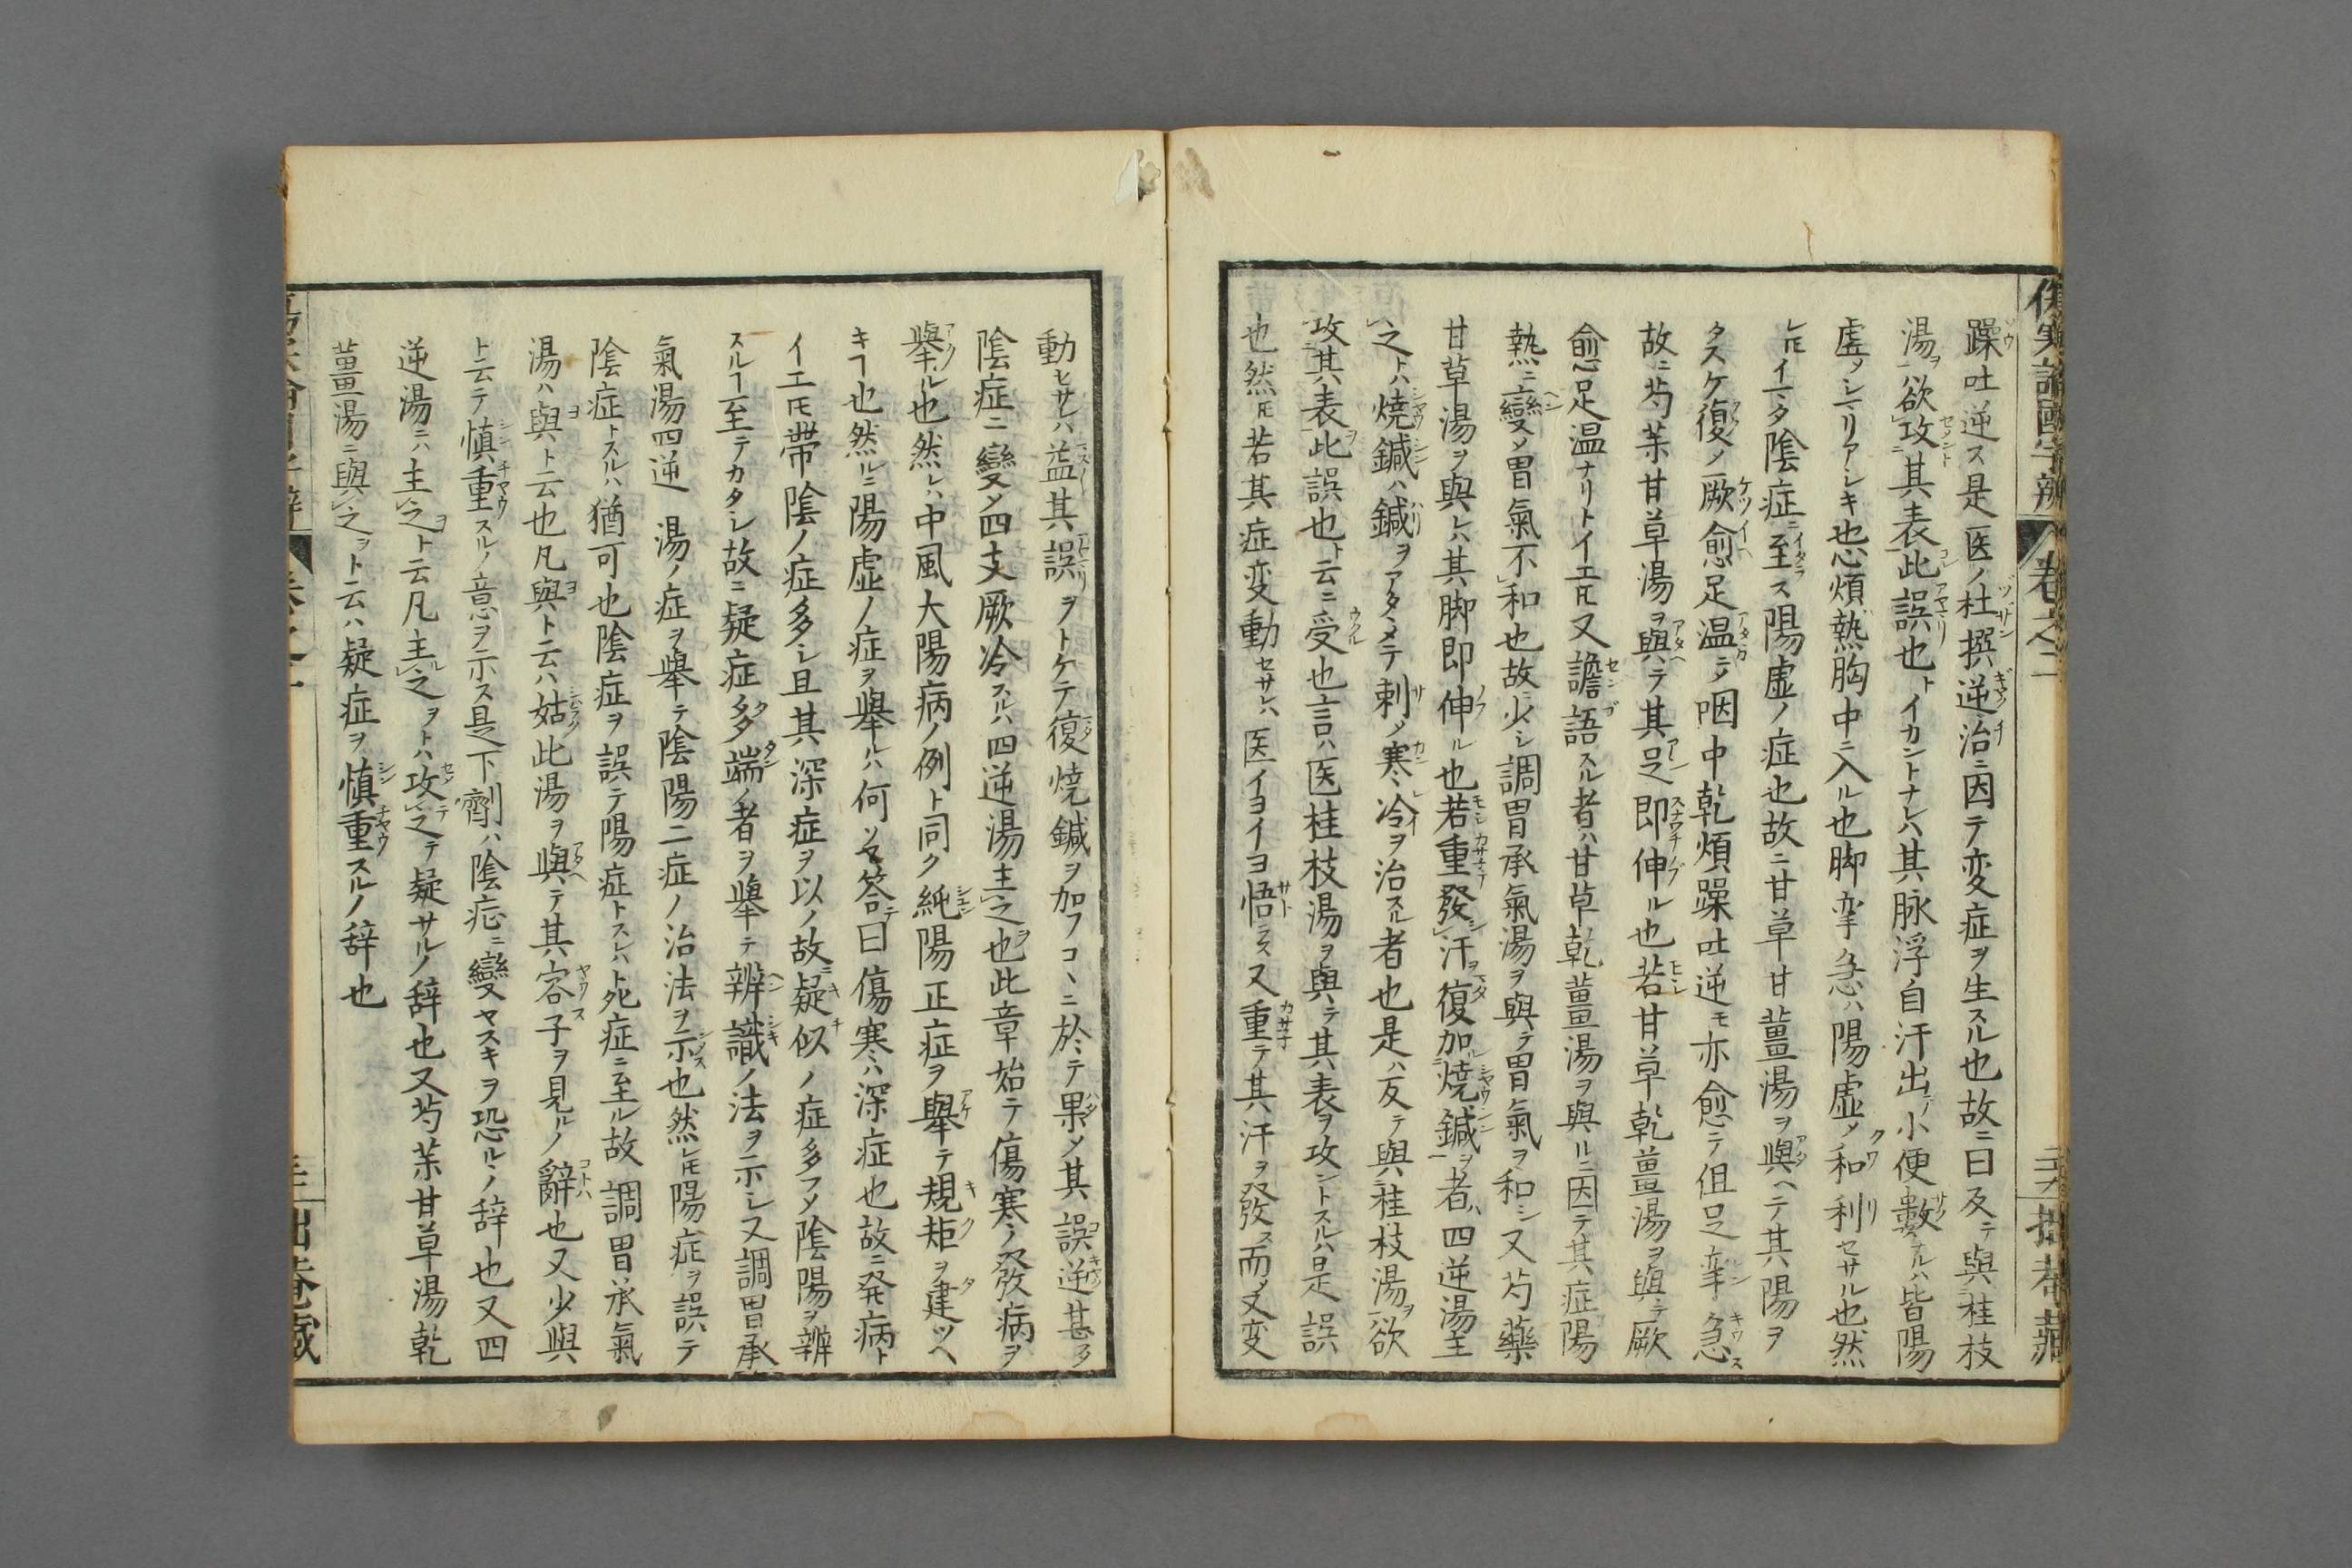 傷寒論國字辨 卷之二 拙菴藏
躁吐逆ス是医ノ杜撰逆治ニ因テ変症ヲ生スル也故ニ曰反テ與桂枝
湯ヲ欲攻其表此誤也トイカントナレハ其脉浮自汗出テ小便數ナルハ皆陽
虚ノシマリアシキ也心煩熱胸中ニ入ル也脚挛急ハ陽虚メ和利セサル也然
レ𪜈イマタ陰症ニ至ラス陽虚ノ症也故ニ甘草甘薑湯ヲ與ヘテ其陽ヲ
タスケ復ノ厥愈足温テ咽中乾煩躁吐逆モ亦愈テ但足挛急ス
故ニ芍薬甘草湯ヲ與ヘテ其足即伸ル也若甘草乾薑湯ヲ與テ厥
愈足温ナリトイエ𪜈又譫語スル者ハ甘草乾薑湯ヲ與ルニ因テ其症陽
熱ニ變メ胃氣不和也故ニ少シ調胃承氣湯ヲ與テ胃氣ヲ和シ又芍藥
甘草湯ヲ與レハ其脚即伸ル也若重發汗ヲ復加燒鍼ヲ者ハ四逆湯主
之トハ燒鍼ハ鍼ヲアタメテ刺メ寒冷ヲ治スル者也是ハ反テ與桂枝湯ヲ欲
攻其表此誤也ト云ニ受也言ハ医桂枝湯ヲ與テ其表ヲ攻ントスルハ是誤
也然𪜈若其症変動セサレハ医イヨイヨ悟ラス又重テ其汗ヲ發ス而メ又変
動セサレハ益其誤ヲトケテ復燒鍼ヲ加フコヽニ於テ果メ其誤逆甚タ多
陰症ニ變メ四支厥冷スルハ四逆湯主之也此章始テ傷寒ノ發病ヲ
舉ル也然レハ中風大陽病ノ例ト同ク純陽正症ヲ舉テ規矩ヲ建ツヘ
キヿ也然ルニ陽虚ノ症ヲ舉ルハ何ソヤ答テ曰傷寒ハ深症也故ニ発病ト
イエ𪜈帯陰ノ症多シ且其深症ヲ以ノ故ニ疑似ノ症多フメ陰陽ヲ辨
スルヿ至テカタシ故ニ疑症多端ノ者ヲ舉テ辨識ノ法ヲ示シ又調胃承
氣湯四逆湯ノ症ヲ舉テ陰陽二症ノ治法ヲ示ス也然レ𪜈陽症ヲ誤テ
陰症トスルハ猶可也陰症ヲ誤テ陽症トスレハ死症ニ至ル故調胃承氣
湯ハ與ト云也凡與ト云ハ姑此湯ヲ與ヘテ其容子ヲ見ルノ辭也又少與
ト云テ慎重スルノ意ヲ示ス是下劑ハ陰症ニ變ヤスキヲ恐ルヽノ辞也又四
逆湯ニハ主之ト云凡主之ヲトハ攻之テ疑サルノ辞也又芍薬甘草湯乾
薑湯ニ與之ヲト云ハ疑症ヲ慎重スルノ辞也